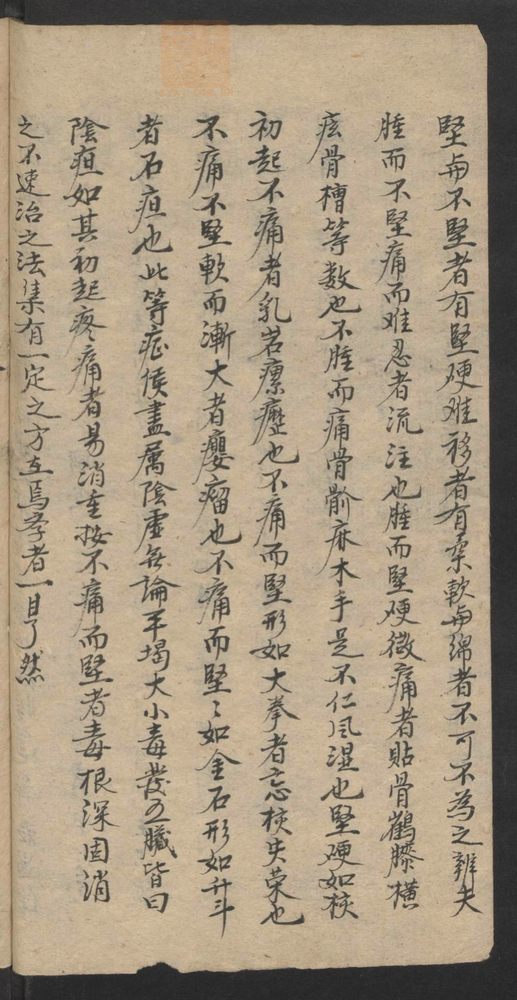 堅與不堅者有堅硬难移者有柔軟與綿者不可不為之辨夫
腫而不堅痛而难忍者流注也腫而堅硬微痛者貼骨鶴膝橫
痃骨槽等数也不腫而痛骨骱麻木手足不仁風湿也堅硬如核
初起不痛者乳岩瘰癧也不痛而堅形如大拳者忘核失荣也
不痛不堅軟而漸大者癭瘤也不痛而堅〻如金石形如升斗
者石疽也此等症候盡属陰虚無論平塌大小毒發五臟皆曰
陰疽如其初起疼痛者易消重按不痛而堅者毒根深固消
之不速治之法集有一定之方在焉学者一目了然